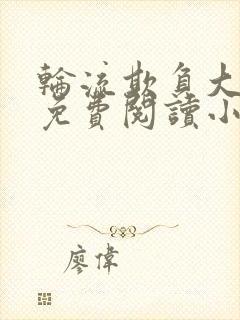 輪流欺負大
免費閱讀小
廖偉